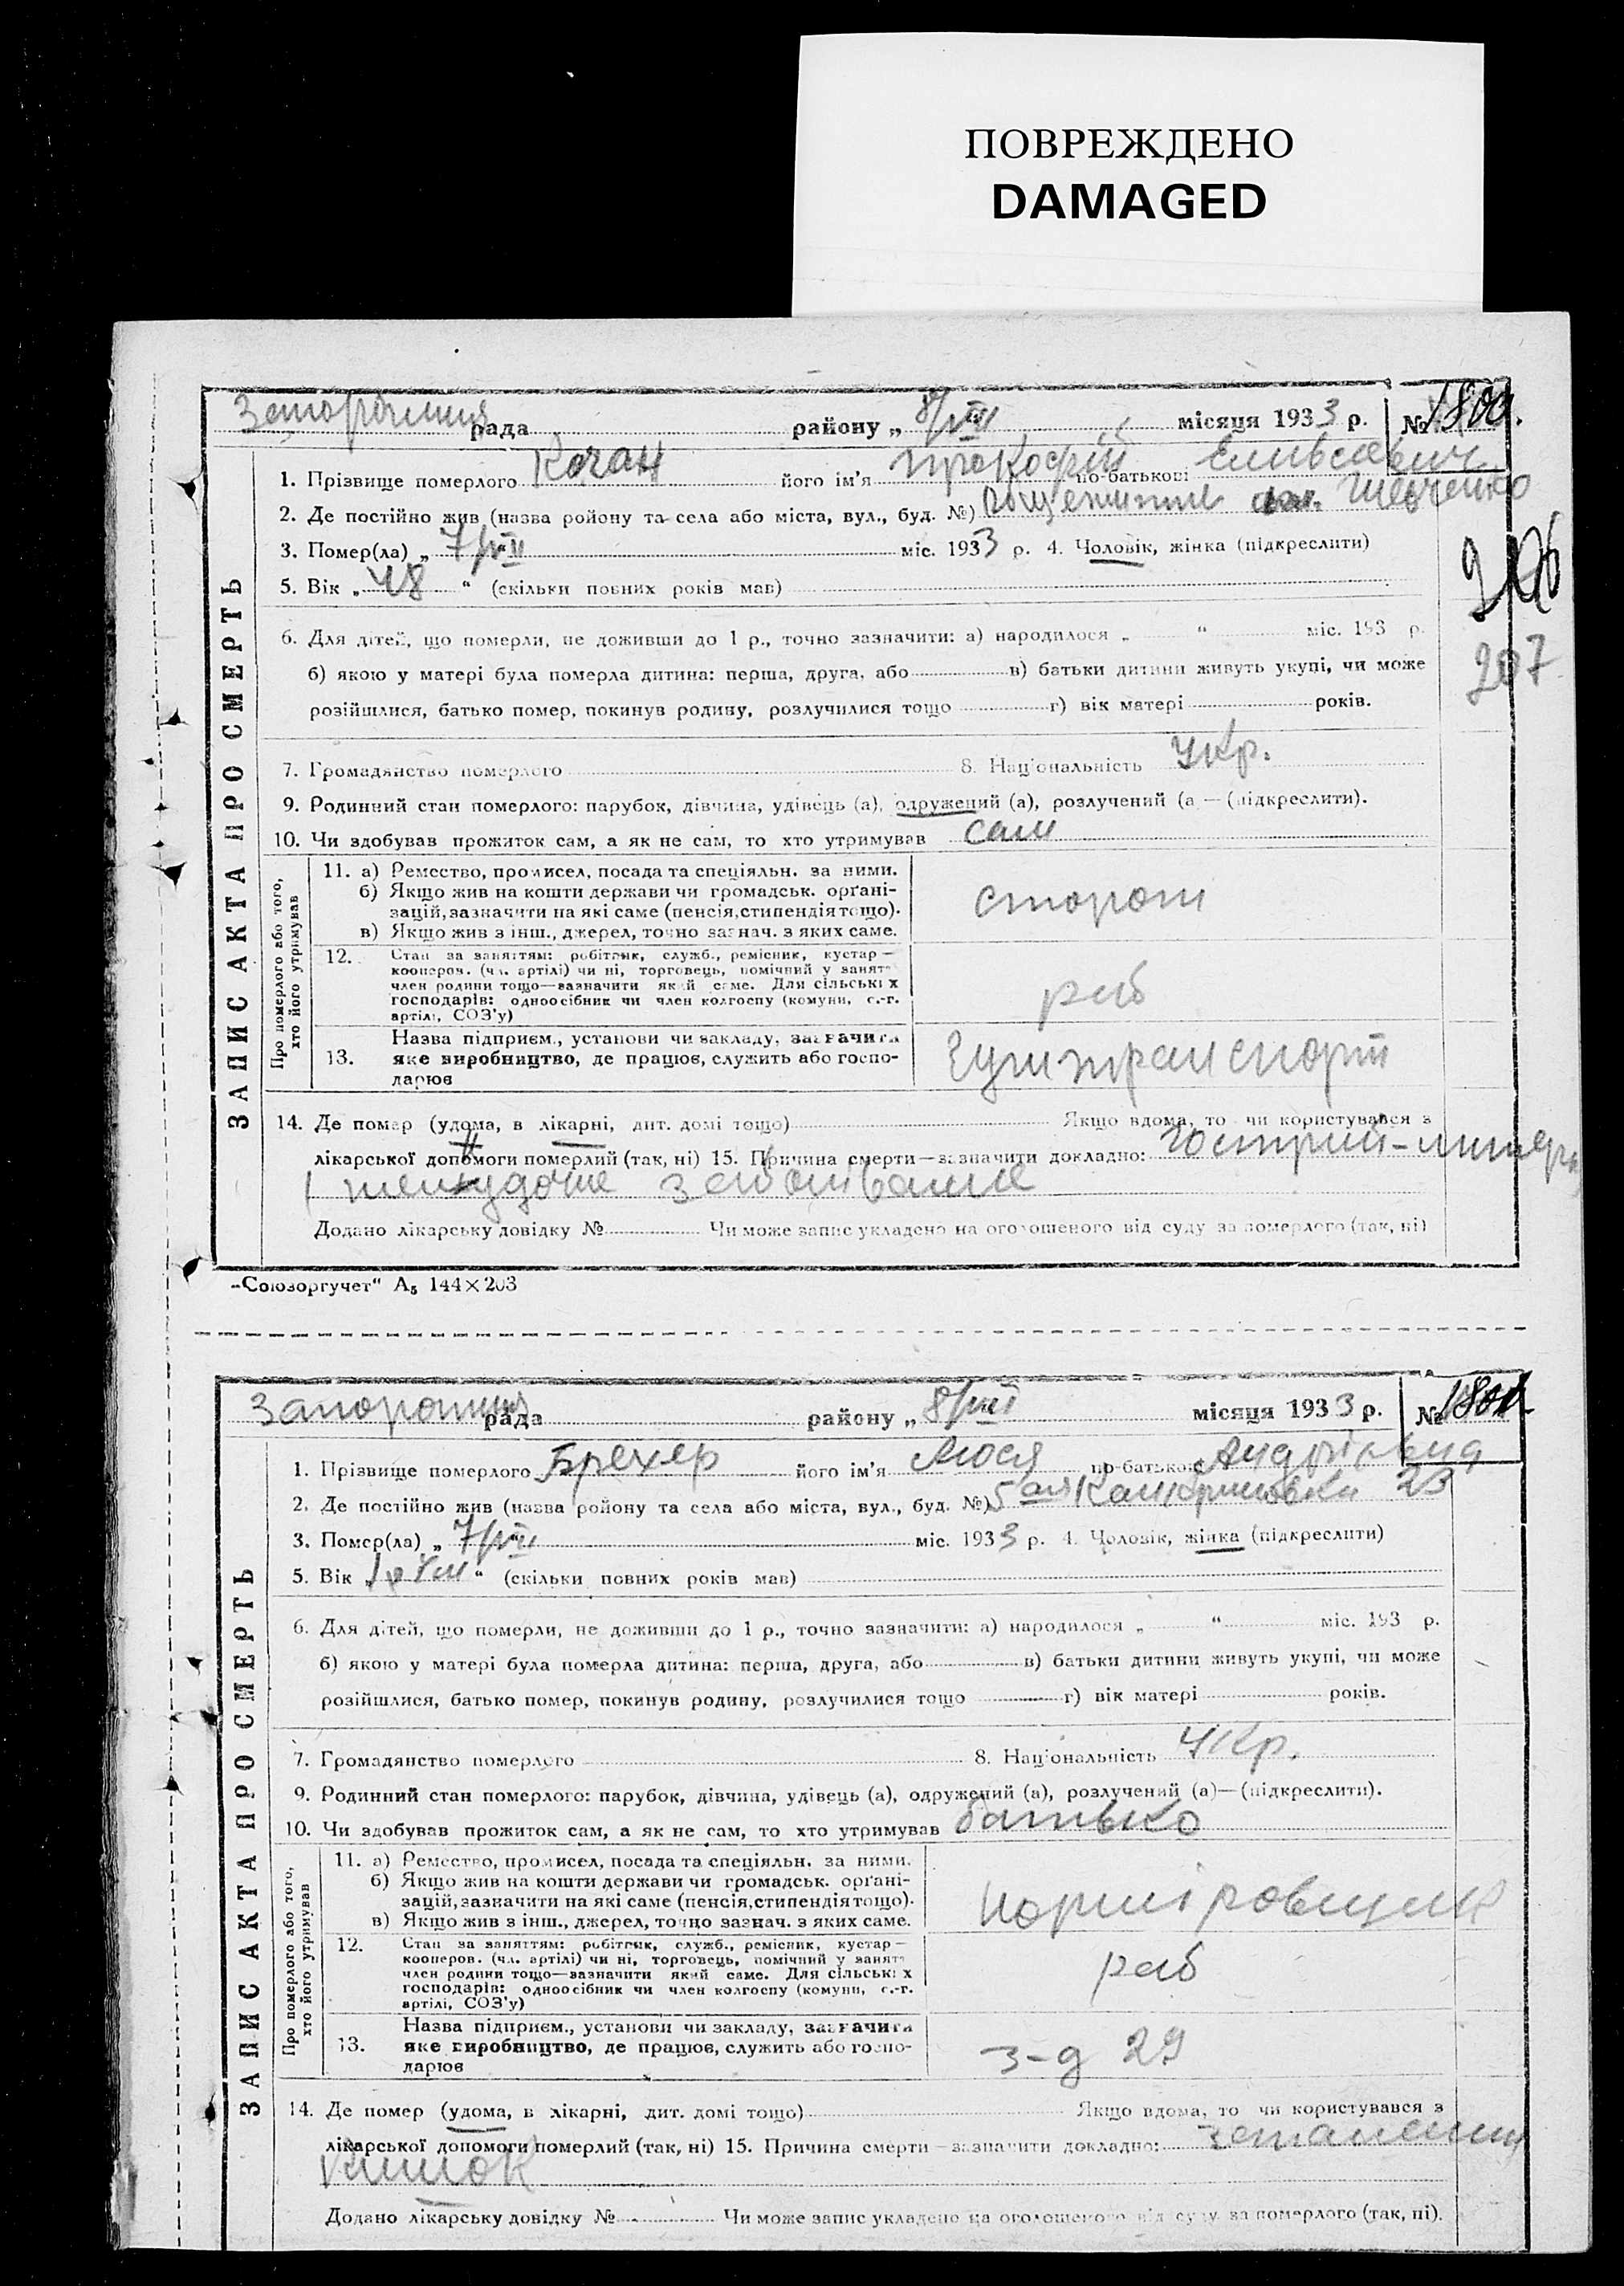 ПОВРЕЖДЕНО
DAMAGED
рада району „ 8/VIII місяця 1933 р. №
1. Прізвище померлого Качан його ім'я Прокофій по-батькові
2. Де постійно жив (назва району та села або міста, вул., буд. №) Шевченко
3. Помер(ла) „ 7/VIII міс. 1933 р. 4. Чоловік, жінка (підкреслити)
5. Вік „ 48 “ (скільки повних років мав)
206
207
6. Для дітей, що померли, не доживши до 1 р., точно зазначити: а) народилося „ “ міс. 193 р.
б) якою у матері була померла дитина: перша, друга, або в) батьки дитини живуть укупі, чи може
розійшлися, батько помер, покинув родину, розлучилися тощо г) вік матері років.
7. Громадянство померлого 8. Національність Укр.
9. Родинний стан померлого: парубок, дівчина, удівець (а), одружений (а), розлучений (а — (підкреслити).
10. Чи здобував прожиток сам, а як не сам, то хто утримував сам
ЗАПИС АКТА ПРО СМЕРТЬ
Про померлого або того, хто його утримував
11. а) Ремество, промисел, посада та спеціяльн. за ними.
б) Якщо жив на кошти держави чи громадськ. орґані-
зацій, зазначити на які саме (пенсія, стипендія тощо).
в) Якщо жив з інш., джерел, точно зазнач. з яких саме.
сторож
12. Стан за заняттям: робітник, служб., ремісник, кустар —
кооперов. (чл. артілі) чи ні, торговець, помічний у занятт
член родини тощо—зазначити який саме. Для сільських
господарів: одноосібник чи член колгоспу (комуни, с.-г.
артілі, СОЗ'у)
раб
13. Назва підприєм., установи чи закладу, зазначити
яке виробництво, де працює, служить або госпо-
дарює
Гужтранспорт
14. Де помер (удома, в лікарні, дит. домі тощо) Якщо вдома, то чи користувався з
лікарської допомоги померлий (так, ні) 15. Причина смерти—зазначити докладно: Гострий-
захворювання
Додано лікарську довідку № Чи може запис укладено на оголошеного від суду за померлого (так, ні)
„Союзоргучет“ А₅ 144×203
рада району „ 8/VIII місяця 1933 р. № 1801
1. Прізвище померлого Брехер його ім'я Люся по-батькові Андріївна
2. Де постійно жив (назва району та села або міста, вул., буд. №) 23
3. Помер(ла) „ 7/VIII міс. 1933 р. 4. Чоловік, жінка (підкреслити)
5. Вік „ “ (скільки повних років мав)
6. Для дітей, що померли, не доживши до 1 р., точно зазначити: а) народилося „ “ міс. 193 р.
б) якою у матері була померла дитина: перша, друга, або в) батьки дитини живуть укупі, чи може
розійшлися, батько помер, покинув родину, розлучилися тощо г) вік матері років.
7. Громадянство померлого 8. Національність Укр.
9. Родинний стан померлого: парубок, дівчина, удівець (а), одружений (а), розлучений (а)—(підкреслити).
10. Чи здобував прожиток сам, а як не сам, то хто утримував батько
ЗАПИС АКТА ПРО СМЕРТЬ
Про померлого або того, хто його утримував
11. а) Ремество, промисел, посада та спеціяльн. за ними.
б) Якщо жив на кошти держави чи громадськ. орґані-
зацій, зазначити на які саме (пенсія, стипендія тощо).
в) Якщо жив з інш., джерел, точно зазнач. з яких саме.
норміровщик
12. Стан за заняттям: робітник, служб., ремісник, кустар —
кооперов. (чл. артілі) чи ні, торговець, помічний у занятт
член родини тощо—зазначити який саме. Для сільських
господарів: одноосібник чи член колгоспу (комуни, с.-г.
артілі, СОЗ'у)
раб
13. Назва підприєм., установи чи закладу, зазначити
яке виробництво, де працює, служить або госпо-
дарює
з-д 29
14. Де помер (удома, в лікарні, дит. домі тощо) Якщо вдома, то чи користувався з
лікарської допомоги померлий (так, ні) 15. Причина смерти—зазначити докладно:
кишок
Додано лікарську довідку № Чи може запис укладено на оголошеного від суду за померлого (так, ні).